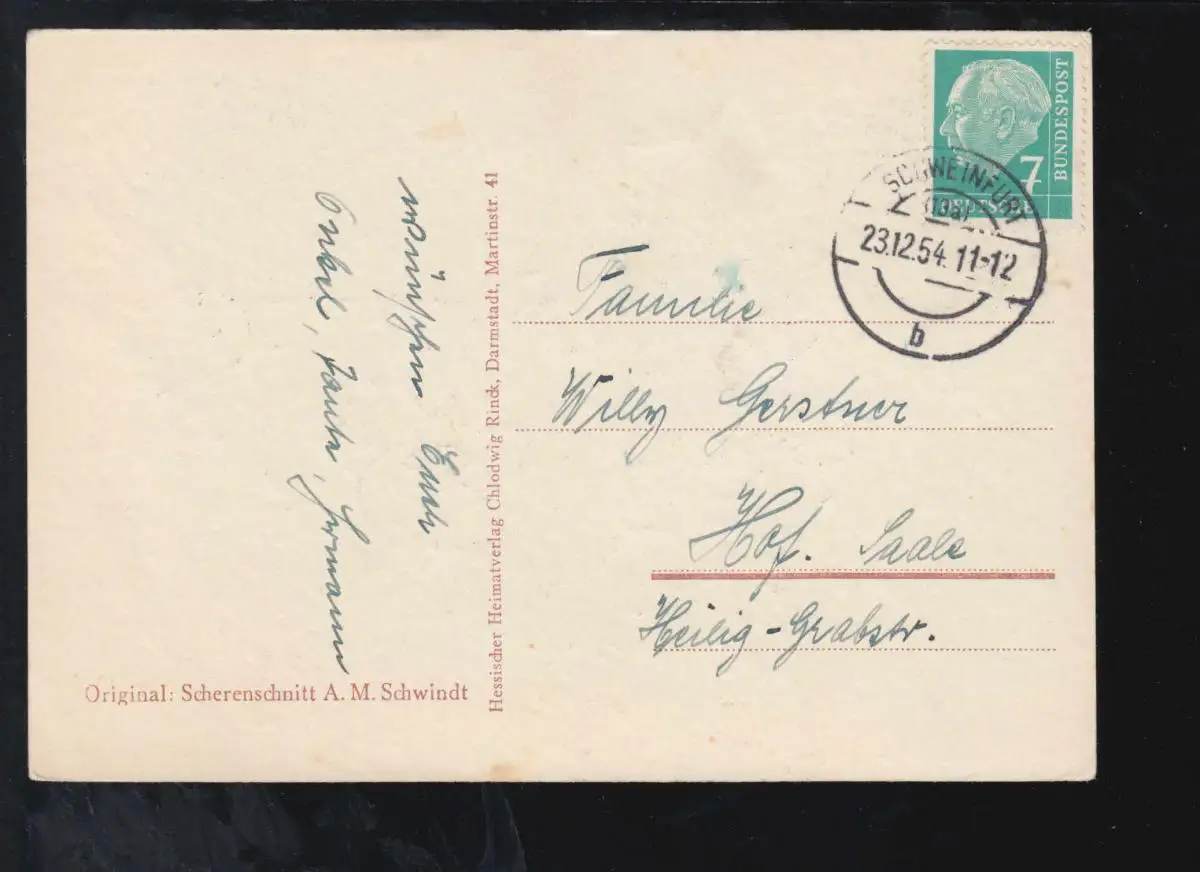 wünschen Euch
Onkel, Tante, Hermann
Original: Scherenschnitt A. M. Schwindt
Hessischer Heimatverlag Chlodwig Rinck, Darmstadt, Martinstr. 41
DEUTSCHE
BUNDESPOST
7
SCHWEINFURT
(13a)
23.12.54. 11-12
b
Familie
Willy Gerstner
Hof. Saale
Heilig-Grabstr.